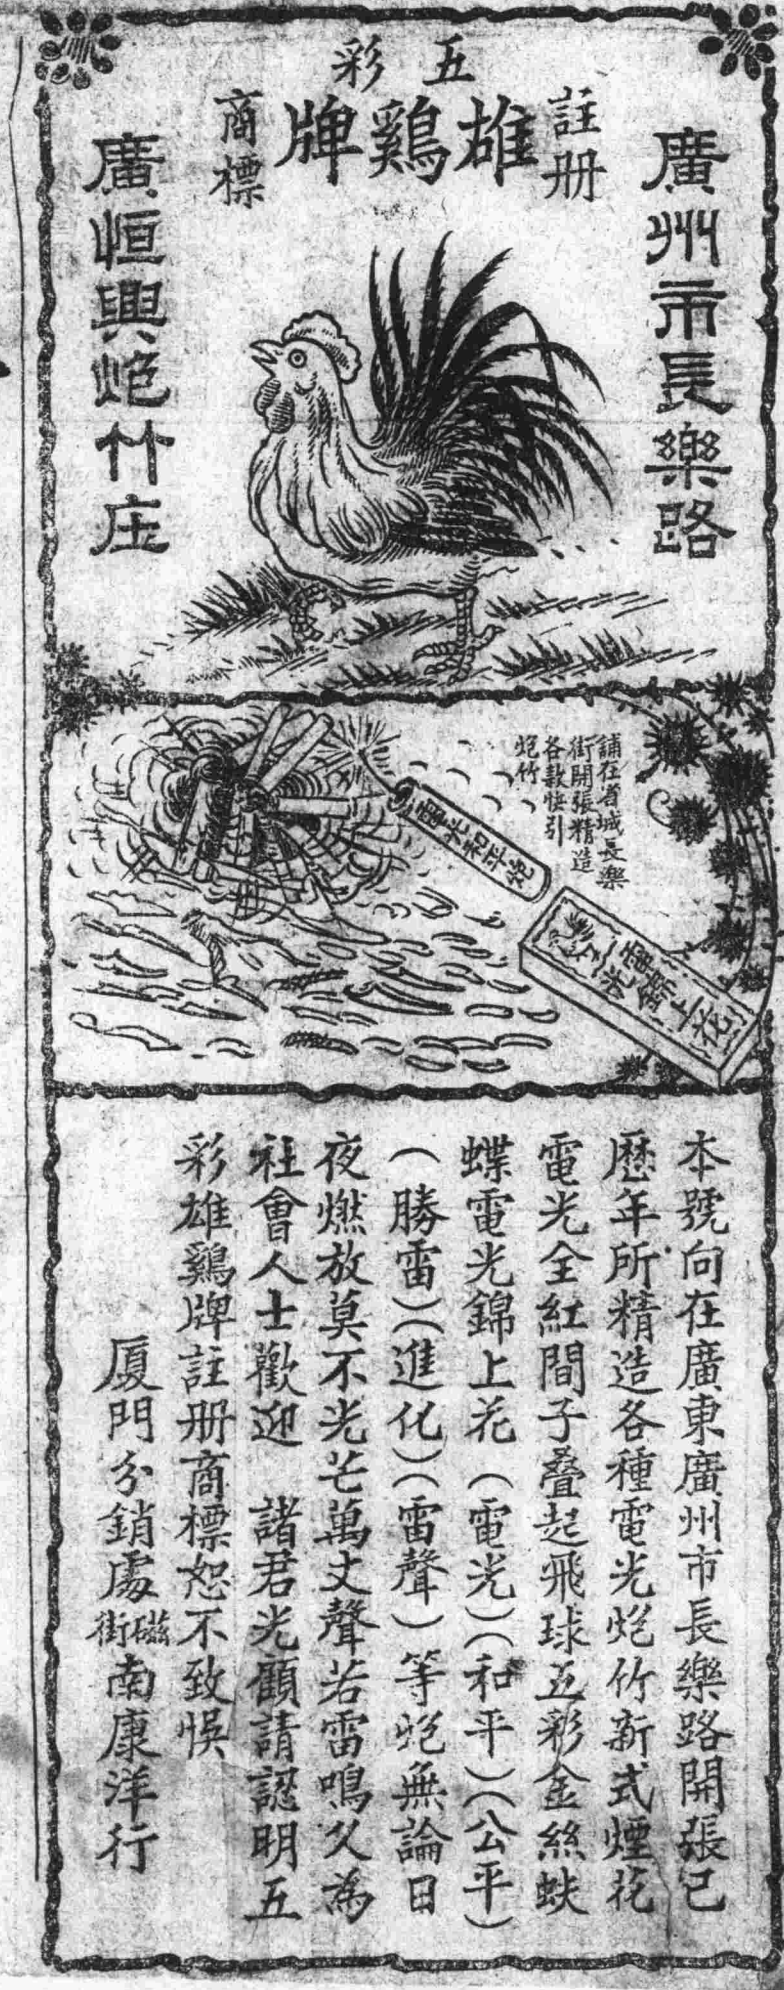 五彩
註册
雄鷄牌
商標
廣州市長樂路
廣恒興炮竹庄
舖在省城長樂
街開張精造
各款快引
炮竹
電光和平炮
電光錦上花
本號向在廣東廣州市長樂路開張已
歷年所精造各種電光炮竹新式煙花
電光全紅間子叠起飛球五彩金絲蚨
蝶電光錦上花（電光）（和平）（公平）
（勝雷）（進化）（雷聲）等炮無論日
夜燃放莫不光芒萬丈聲若雷鳴久為
社會人士歡迎　諸君光顧請認明五
彩雄鷄牌註册商標恕不致悞
厦門分銷處磁街南康洋行